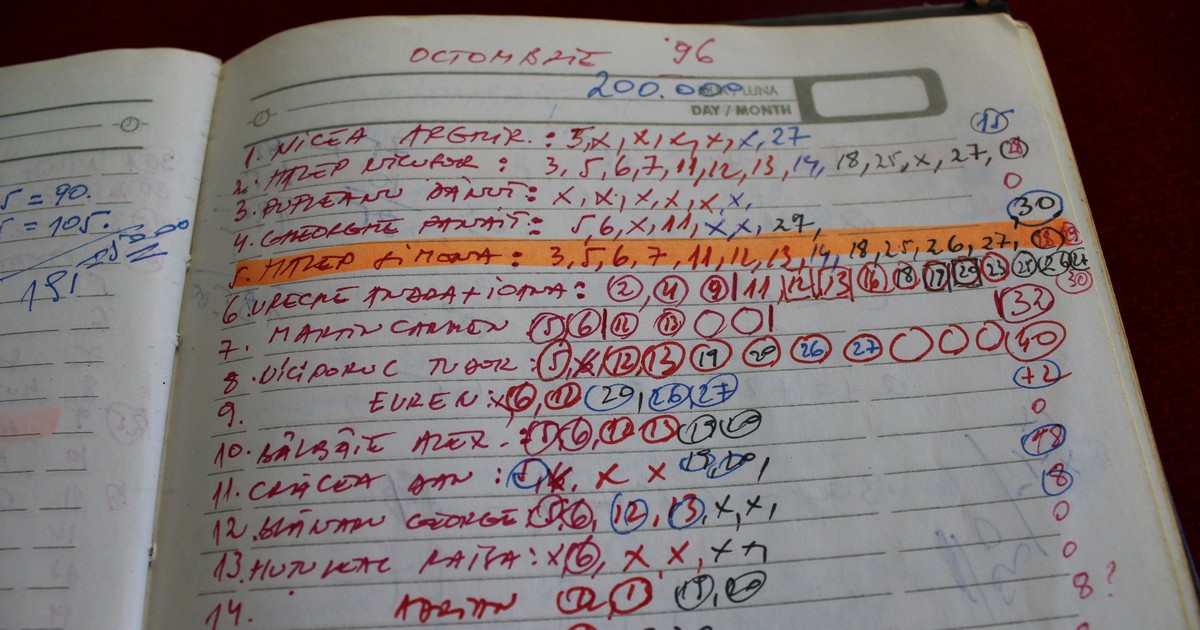 OCTOMBRIE '96
200.000
ZIUA/LUNA
DAY / MONTH
5 = 90.
5 = 105.
191
1. NICEA ARGHIR.: 3,x,x,x,x,x,27 15
2. HALEP NICUȘOR: 3,5,6,7,11,12,13,14,18,25,x,27,28
3. PUPLEANU DĂNUȚ: x,x,x,x,x,x, 0
4. GHEORGHE PANAIT: 5,6,x,11,x,x,27, 30
5. HALEP SIMONA: 3,5,6,7,11,12,13,14,18,25,26,27,28 29
6. URECHE ANDRA+IOANA: 2,4,9|11,12|13|16 18 17 20 23 25 30
7. MARTIN CARMEN 5 6|12 13 32
8. TUDOR: 5,x,12,13 19 20 26 27 40
9. EUREN: x6,12 20,26 27 +2
10. BÂLBÂIE ALEX.: 5 6,12 13 19 20 0
11. CRÂCEA DAN: 5,x, x x 19,20, 48
12. GEORGE: 5 6, 12, 13, x, x, 8
0
13. RAISA: x 6, x x, x x 0
14. ADRIAN 12, 1 19, 20 8?